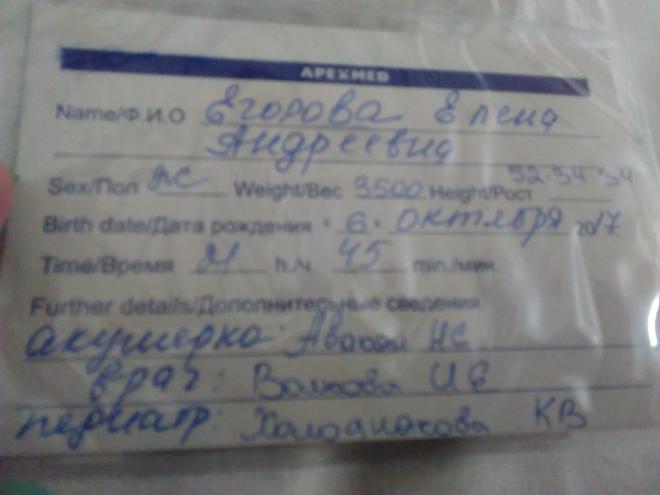 APEXMED
Name/Ф.И.О Егорова Елена
Андреевна
Sex/Пол ж Weight/Вес 3500 Height/Рост 52-34-34
Birth date/Дата рождения "6" октября 2017
Time/Время 21 h./ч. 45 min./мин.
Further details/Дополнительные сведения
акушерка: НС
врач: Волкова И Е
педиатр: КВ